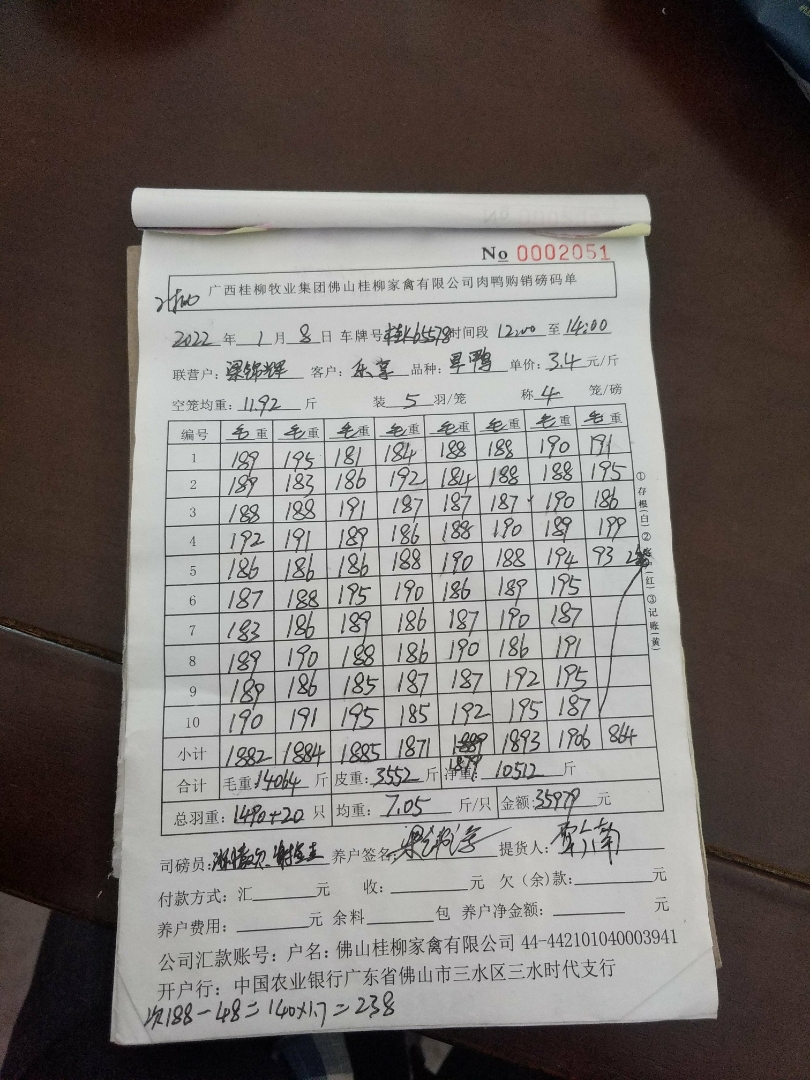 No 0002051
广西桂柳牧业集团佛山桂柳家禽有限公司肉鸭购销磅码单
2022 年 1 月 8 日 车牌号 时间段 12:00 至 14:00
联营户: 梁锦辉 客户: 乐享 品种: 旱鸭 单价: 3.4 元/斤
空笼均重: 11.92 斤 装 5 羽/笼 称 4 笼/磅
编号 毛重 毛重 毛重 毛重 毛重 毛重 毛重 毛重
1 189 195 181 184 188 188 190 191
2 189 183 186 192 184 188 188 195
3 188 188 191 187 187 187 190 186
4 192 191 189 186 188 190 189 199
5 186 186 186 188 190 188 194 93
6 187 188 195 190 186 189 195
7 183 186 189 186 187 190 187
8 189 190 188 186 190 186 191
9 189 186 185 187 187 192 195
10 190 191 195 185 192 195 187
小计 1882 1884 1885 1871 1879 1893 1906 864
合计 毛重: 14064 斤 皮重: 3552 斤 净重: 10512 斤
总羽重: 1490+20 只 均重: 7.05 斤/只 金额: 35979 元
①存根(白)②客户(红)③记账(黄)
司磅员: 养户签名: 提货人:
付款方式: 汇 元 收: 元 欠(余)款: 元
养户费用: 元 余料 包 养户净金额: 元
公司汇款账号: 户名: 佛山桂柳家禽有限公司 44-442101040003941
开户行: 中国农业银行广东省佛山市三水区三水时代支行
次188-48=140×1.7=238